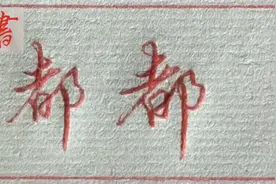 書
都 都